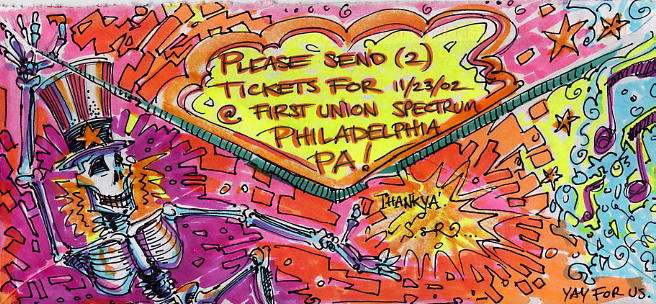 PLEASE SEND (2)
TICKETS FOR 11/23/02
@ FIRST UNION SPECTRUM
PHILADELPHIA
PA!
THANKYA'
S & R
YAY FOR US.